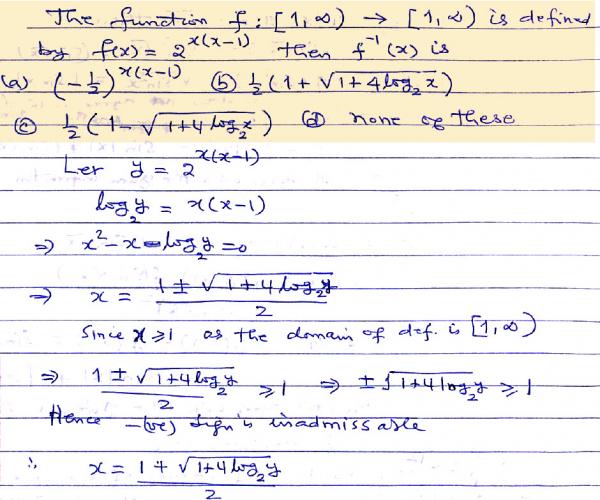 The function f : [1,∞) → [1,∞) is defined
by f(x) = 2^{x(x-1)} then f^{-1}(x) is
(a) (-1/2)^{x(x-1)} (b) 1/2 (1 + √(1+4log₂x))
(c) 1/2 (1 - √(1+4log₂x)) (d) none of these
Let y = 2^{x(x-1)}
log₂y = x(x-1)
⇒ x² - x - log₂y = 0
⇒ x = (1 ± √(1+4log₂y))/2
Since x ≥ 1 as the domain of def. is [1,∞)
⇒ (1 ± √(1+4log₂y))/2 ≥ 1 ⇒ ± √(1+4log₂y) ≥ 1
Hence -(ve) sign is inadmissable
∴ x = (1 + √(1+4log₂y))/2